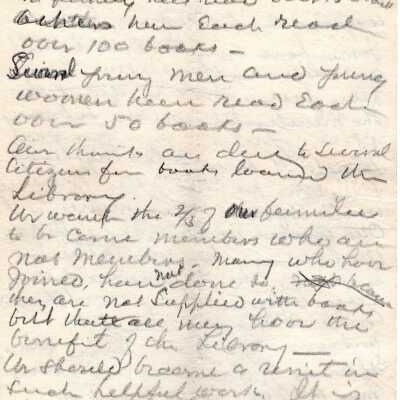 others have Each read
over 100 books —
Several young men and young
women have read Each
over 50 books —
Our thanks are due to Several
Citizens for books loaned the
Library.
We want the 2/3 of our families
to be come members who are
not members. Many who have
Joined, have not done so
they are not supplied with books
but that all may have the
benefit of the Library —
We should become a unit in
such helpful work. It is